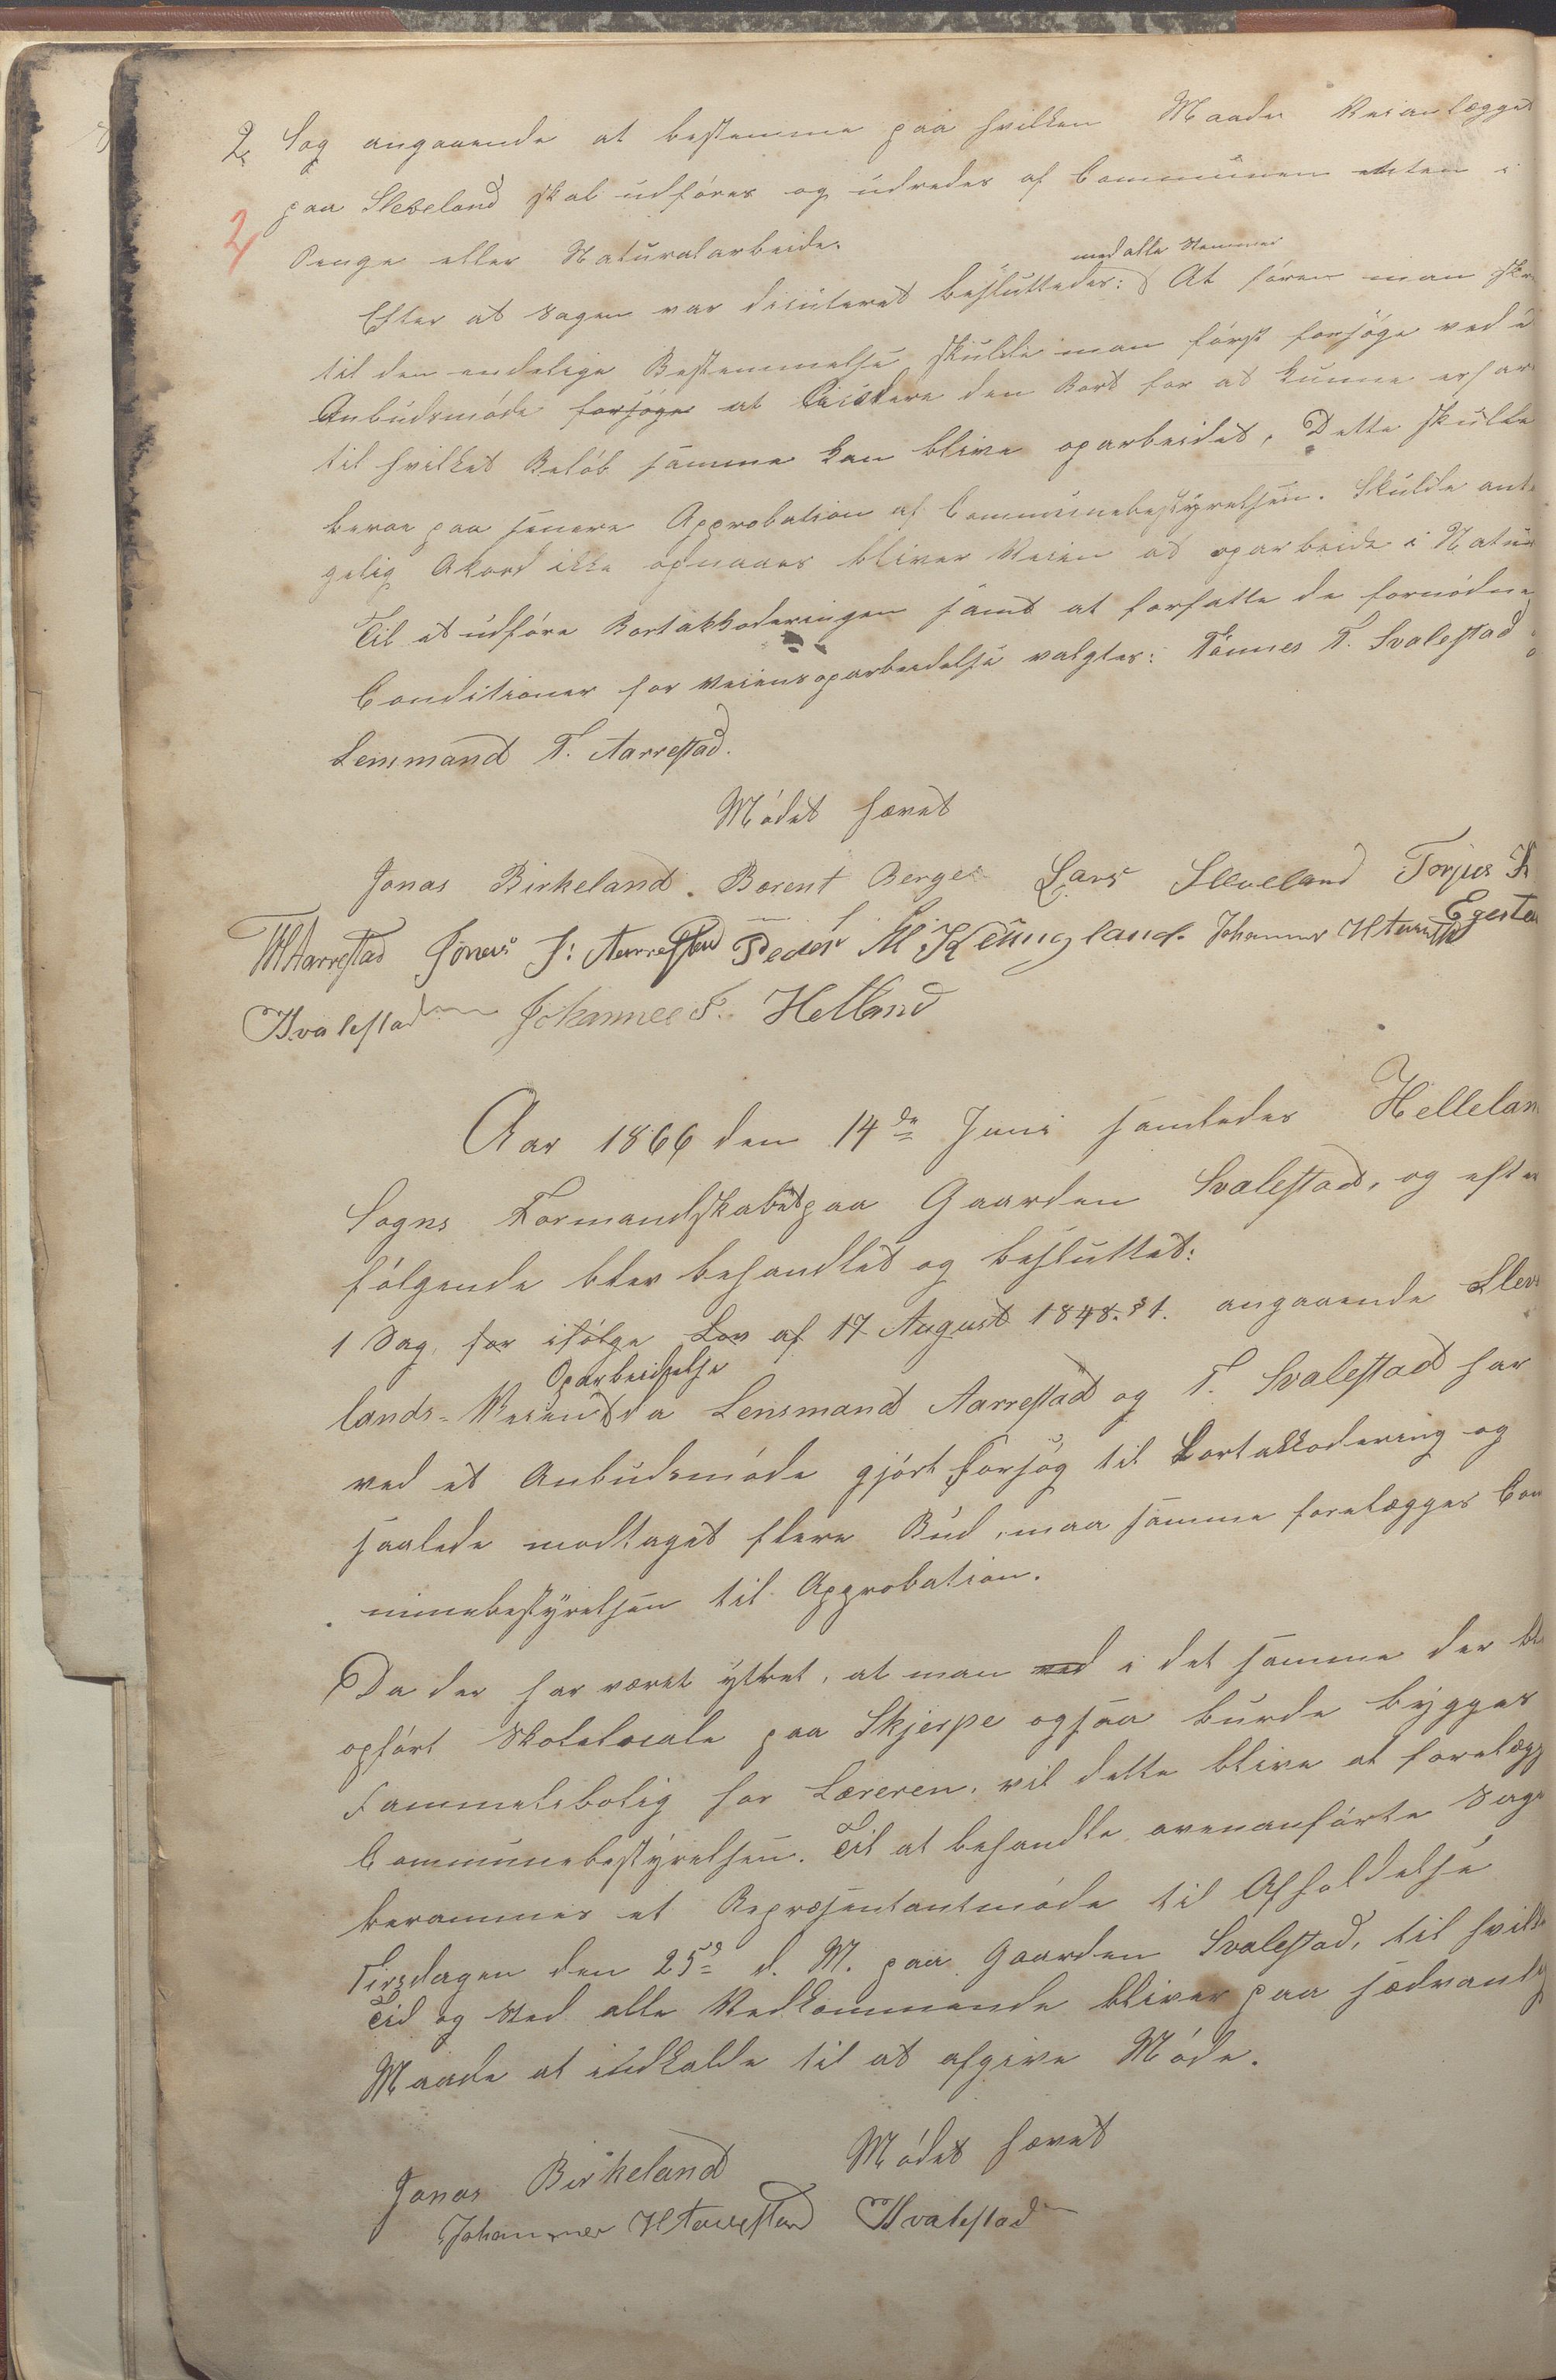 2 Sag angaaende at bestemme paa hvilken Maade Veianlægget
2 paa Sleveland skal udføres og udredes af Communen enten i
Penge eller Naturalarbeide.
med alle Stemmer
Efter at Sagen var discuteret besluttedes: At føren man skr
til den endelige Bestemmelse skulde man først forsøge ved é
Anbudsmøde forsøges at licitere den Bort for at kunne erfar
til hvilket Beløb samme kan blive oparbeidet. Dette skulde
beroe paa senere Approbation af Communebestyrelsen. Skulde ant
gelig Akord ikke opnaaes bliver Veien at oparbeide i Natur
Til at udføre Bortakkoderingen samt at forfatte de fornødne
Conditioner for Veiens oparbeidelse valgtes: Tønnes T. Svalestad o
Lensmand T. Aarrestad.
Mødet hævet
Jonas Birkeland. Berent Berge Lars Sleveland Torjus K
TMAarrestad Jonas J: Aarrestad Peder M KClungland. Johannes H Aarrestad Egesten
TSvalestad Johannes F. Helland
Aar 1866 den 14de Juni samledes Hellelan
Sogns Formandskabet paa Gaarden Svalestad, og efter
følgende blev behandlet og besluttet:
1 Sag, for ifølge Lov af 17 August 1848. § 1. angaaende Sleve
Oparbeidelse
lands-Veien da Lensmand Aarrestad og T. Svalestad har
ved et Anbudsmøde gjørt Forsøg til Bortakkodering og
saalede modtaget flere Bud, maa samme forelægges Com
munebestyrelsen til Approbation.
Da der har været yttret, at man ved i det samme der bl
opført Skolelocale paa Skjerpe ogsaa burde bygges
Fammelebolig for Læreren, vil dette blive at forelægg
Communebestyrelsen. Til at behandle ovenanførte Sage
berammes et Repræsentantmøde til Afholdelse
Tirsdagen den 25de d. M. paa Gaarden Svalestad, til hvilk
Tid og Sted alle Vedkommende bliver paa sædvanlig
Maade at indkalde til at afgive Møde.
Mødet hævet
Jonas Birkeland
Johannes H Aarrestad TSvalestad